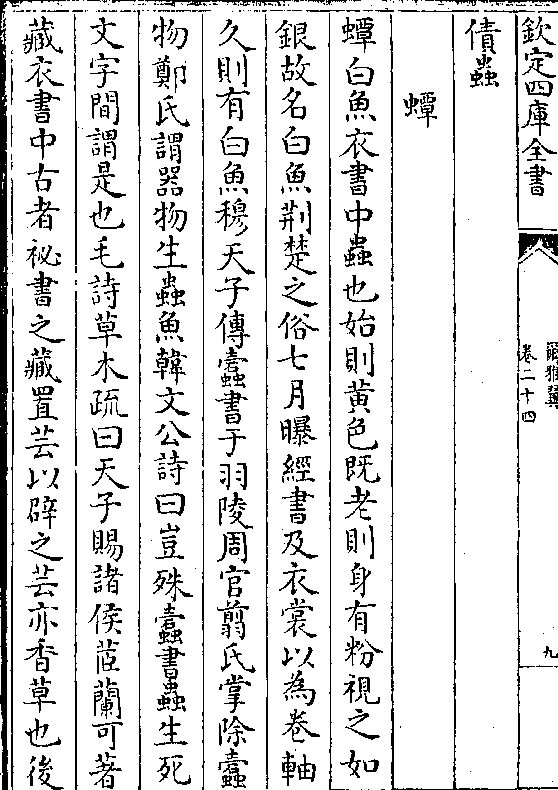 欽定四庫全書
爾雅翼
卷二十四
九
債蟲
蟫
蟫白魚衣書中蟲也始則黄色既老則身有粉視之如
銀故名白魚荆楚之俗七月曝經書及衣裳以為卷軸
久則有白魚穆天子傳蠹書于羽陵周官翦氏掌除蠹
物鄭氏謂器物生蟲魚韓文公詩曰豈殊蠹書蟲生死
文字間謂是也毛詩草木疏曰天子賜諸侯茝蘭可著
藏衣書中古者祕書之藏置芸以辟之芸亦香草也後